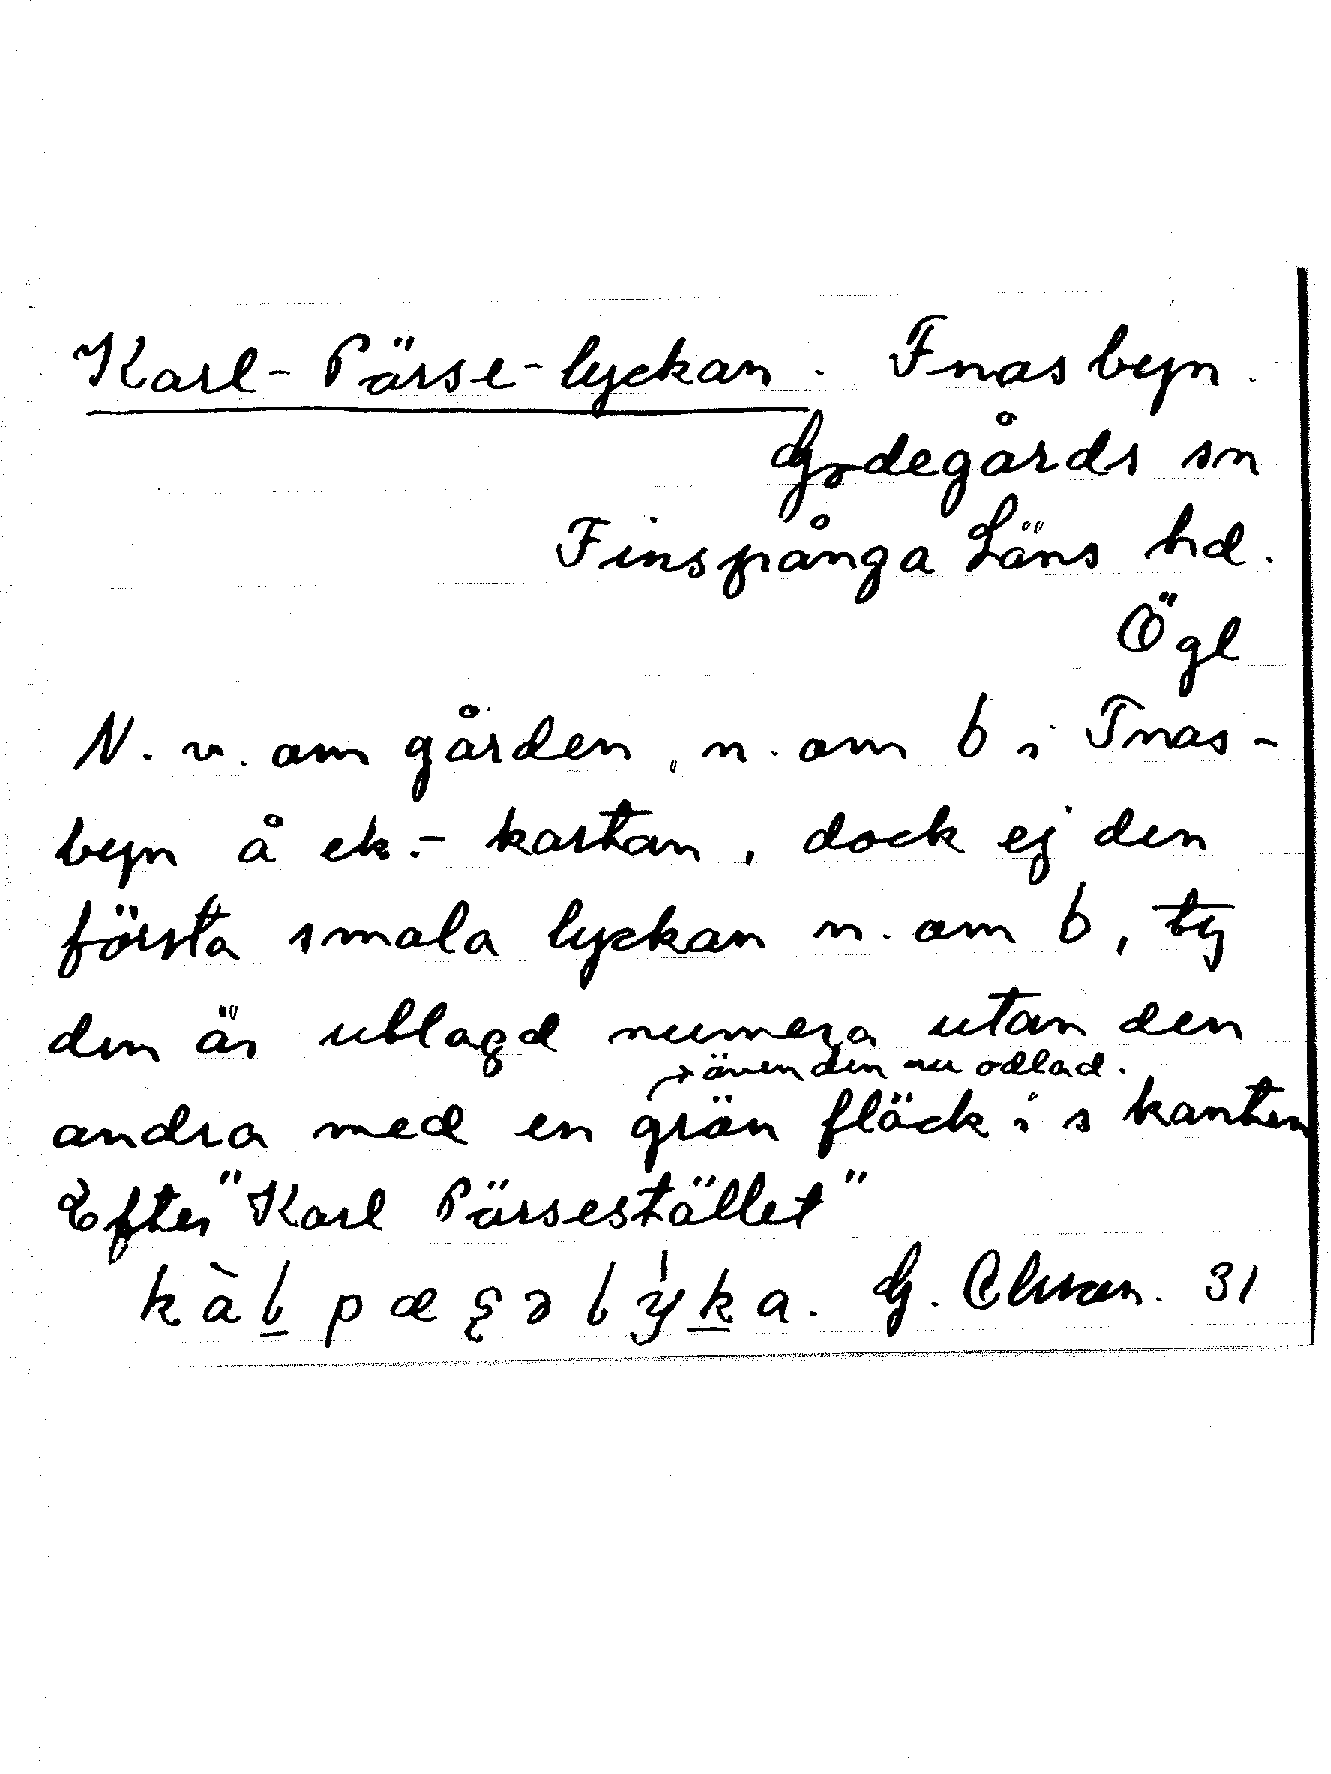 Karl-Pärse-lyckan. Fnasbyn.
Godegårds sn
Finspånga Läns hd.
Ögl
N. v. om gården, n. om b i Fnas-
byn å ek.- kartan, dock ej den
första smala lyckan n. om b, ty
den är utlagd numera utan den
→ även den nu odlad.
andra med en grön fläck i s kanten
Efter "Karl Pärsestället"
G. 31